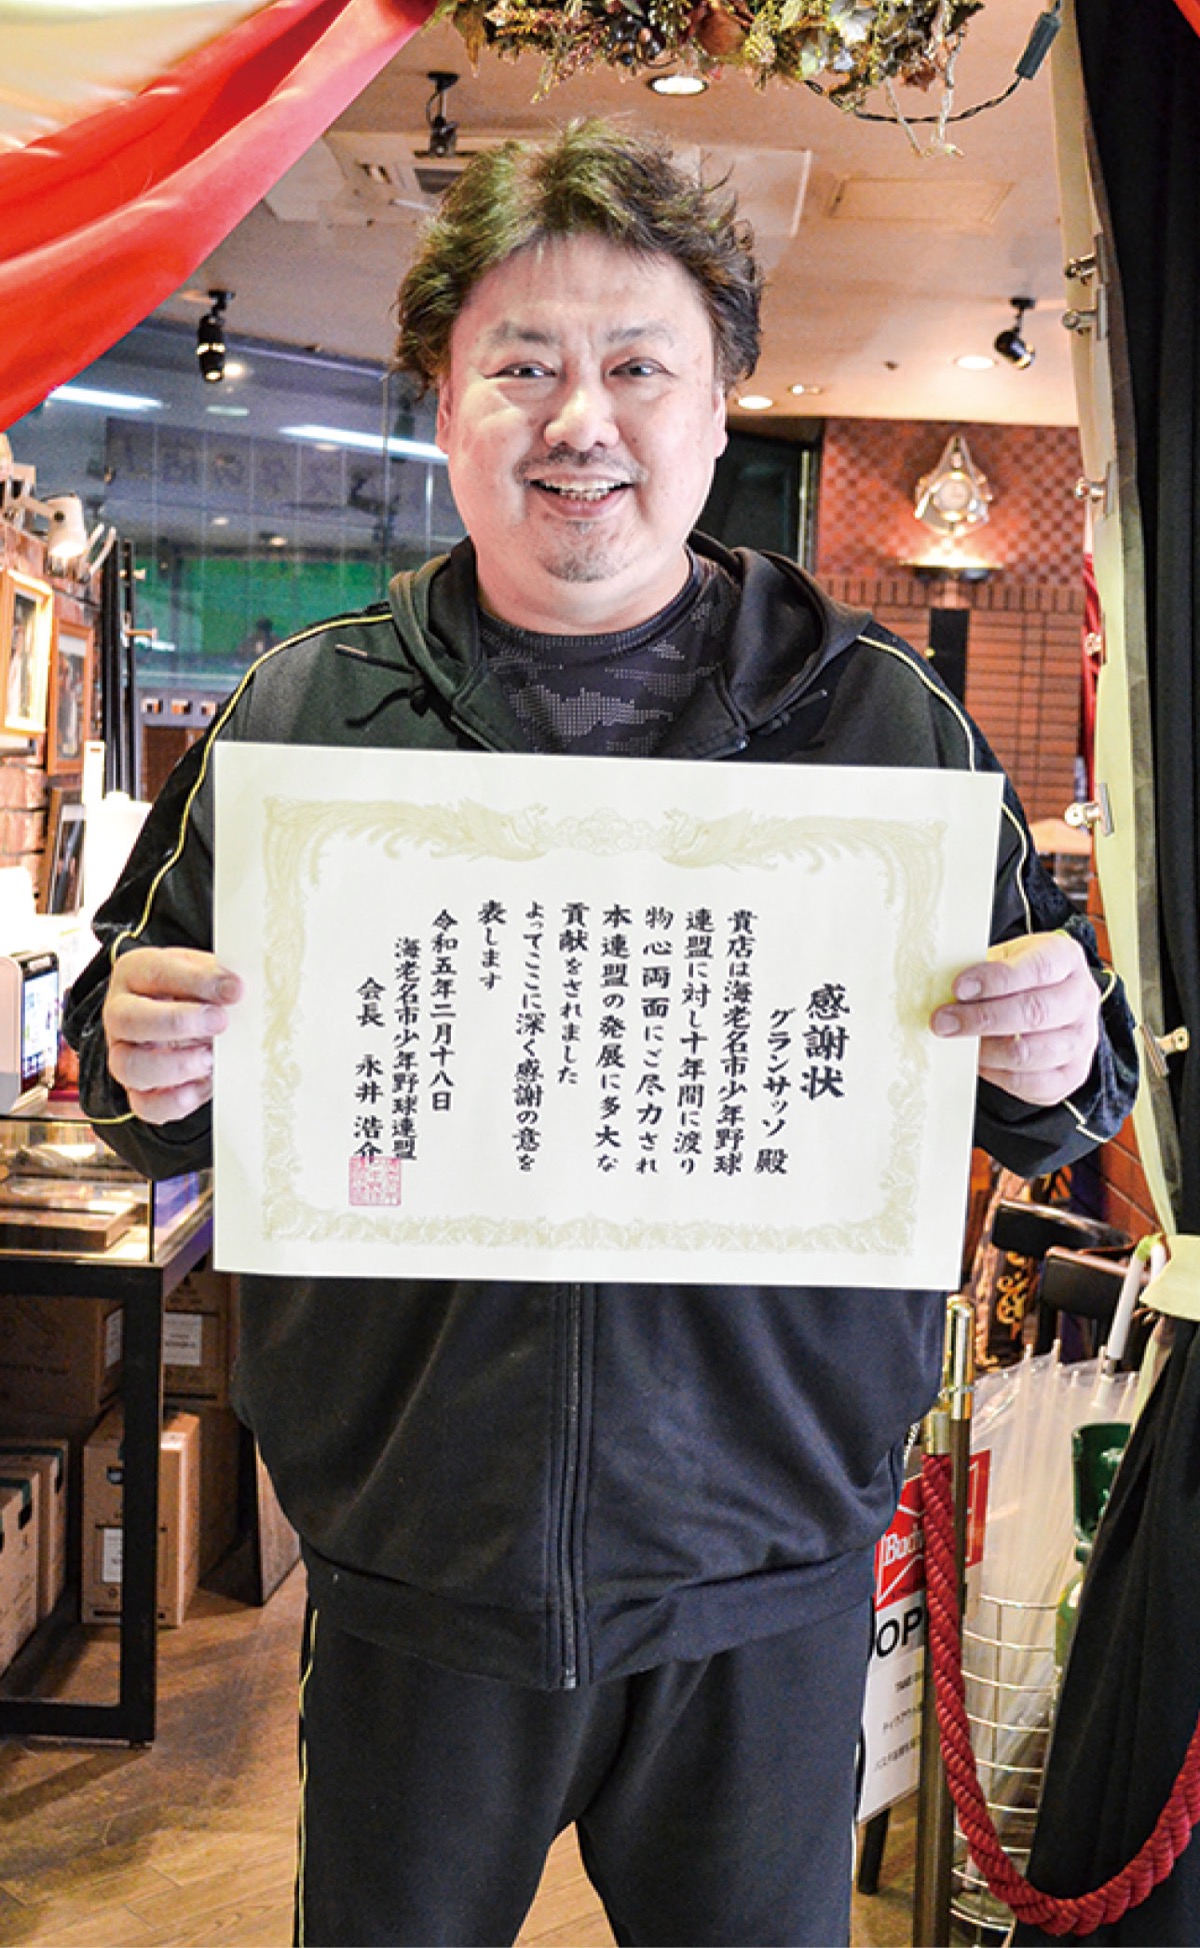 感謝状
グランサッソ 殿
貴店は海老名市少年野球
連盟に対し十年間に渡り
物心両面にご尽力され
本連盟の発展に多大な
貢献をされました
よってここに深く感謝の意を
表します
令和五年二月十八日
海老名市少年野球連盟
会長 永井 浩介
Bud
OP
TAKE